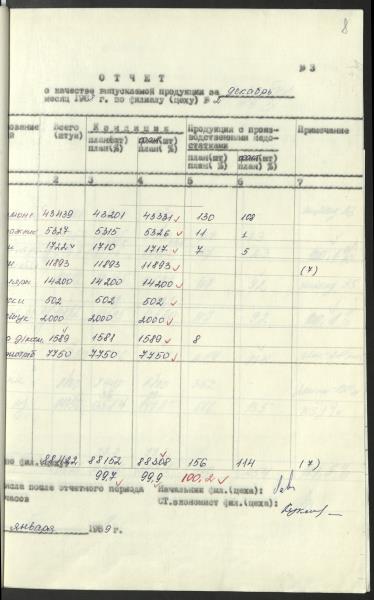 8
№ 3
О Т Ч Е Т
о качестве выпускаемой продукции за декабрь
месяц 198 г. по филиалу (цеху) № 2
ование Всего (штук) Кондиция Продукция с производственными недостатками Примечание
план(шт) план(%) факт(шт) план(%) план(шт) план(%) факт(шт) план(%)
2 3 4 5 6 7
43439 43201 43331 130 108
5327 5315 5326 11 1
1722 1710 1717 7 5
11893 11893 11893 (7)
14200 14200 14200
502 502 502
2000 2000 2000
1589 1581 1589 8
7750 7750 7750
по фил.(цеху) 88422 88152 88308 156 114 (7)
99,7 99,9 100,2
числа после отчетного периода Начальник фил.(цеха):
часов СТ.экономист фил.(цеха):
января 1989 г.